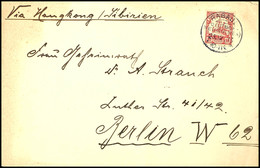 Via Hongkong / Sibirien
Frau Geheimrath
v. A. Strauch
Luther Str. 41/42.
Berlin W 62